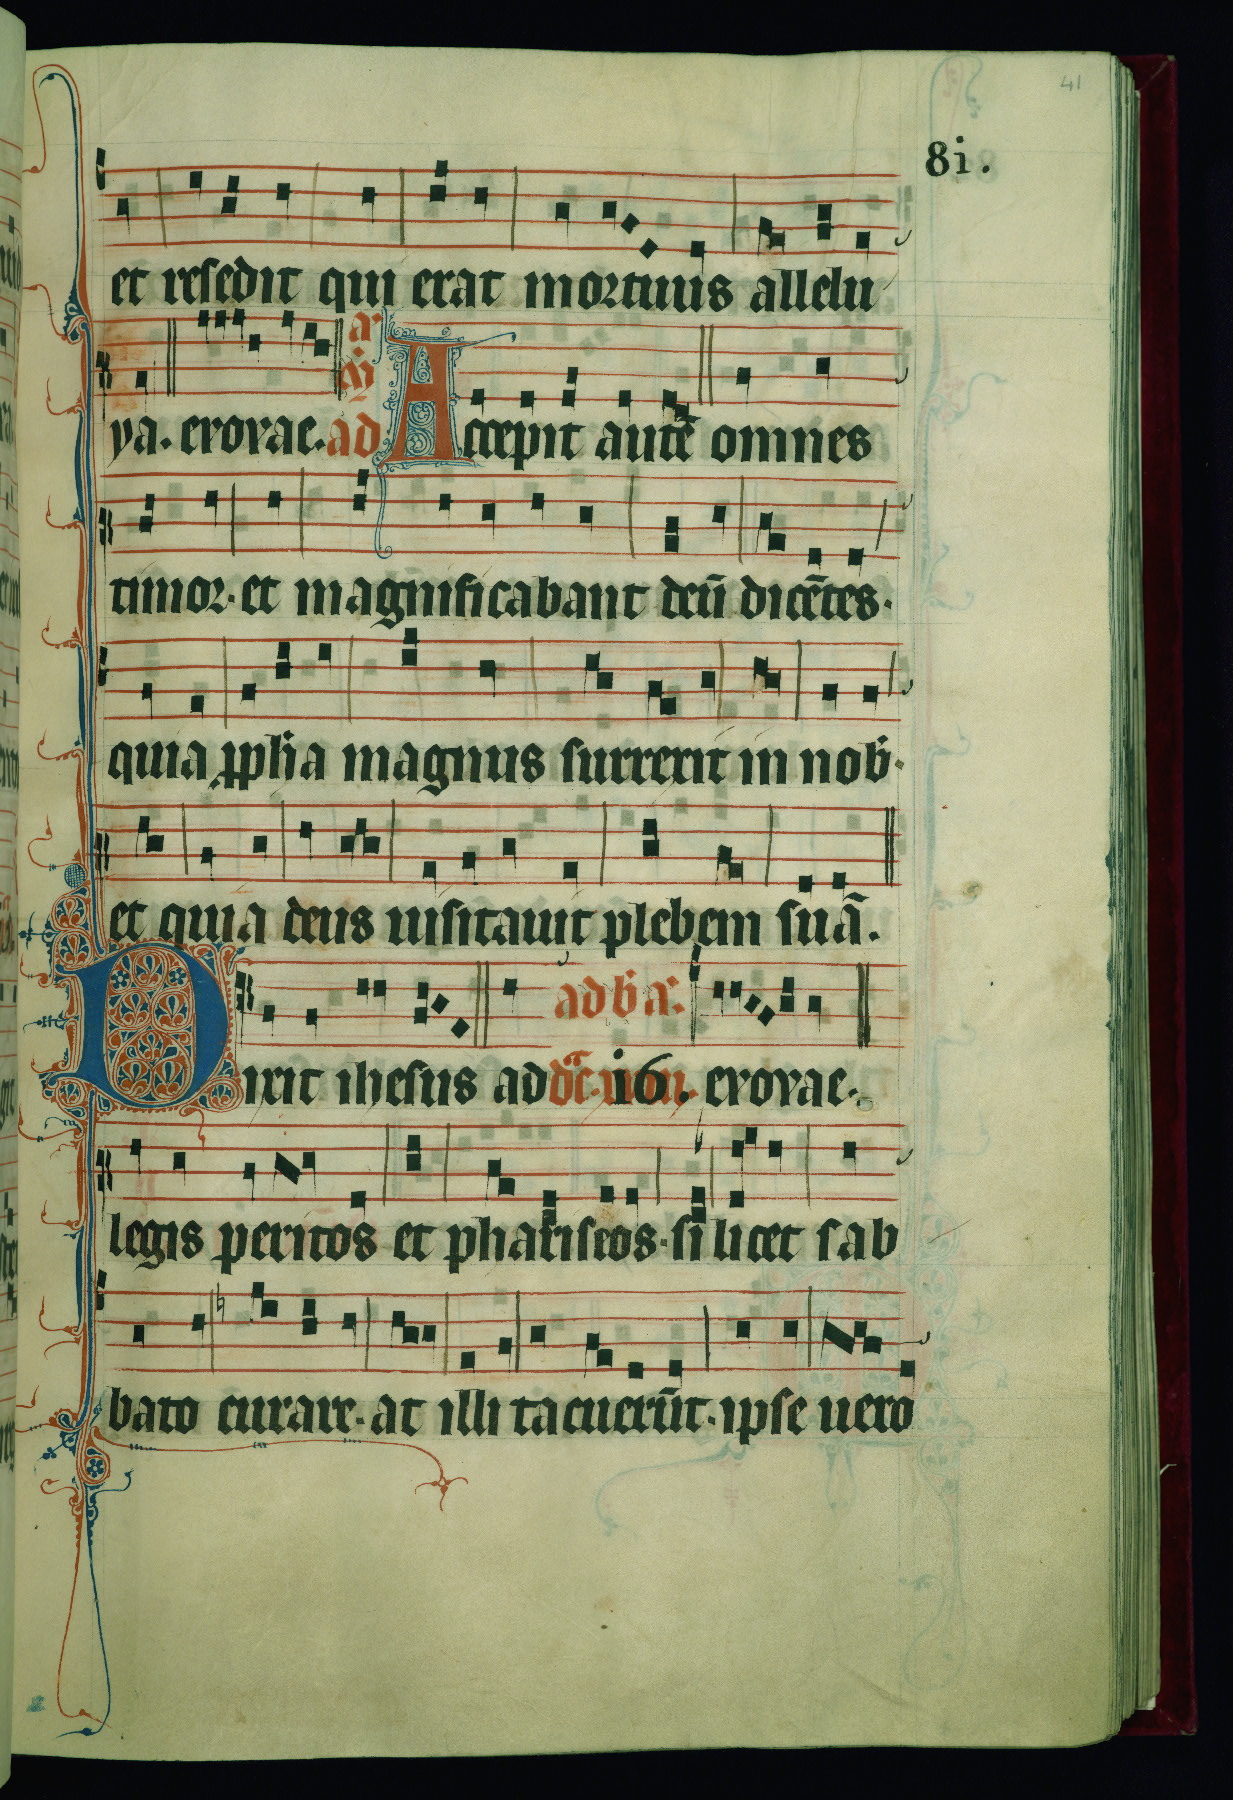 41
8i.
et resedit qui erat mortuus allelu
ya. evovae. ad m̄ a. Accepit autē omnes
timor. et magnificabant deū dicētes.
quia ꝓpha magnus surrexit in nob̄.
et quia deus uisitauit plebem suā.
ad b̄ a.
Dixit ihesus ad dc̄. 16. evovae.
legis peritos et phariseos. si licet sab
bato curare. at illi tacuerūt. ipse uero